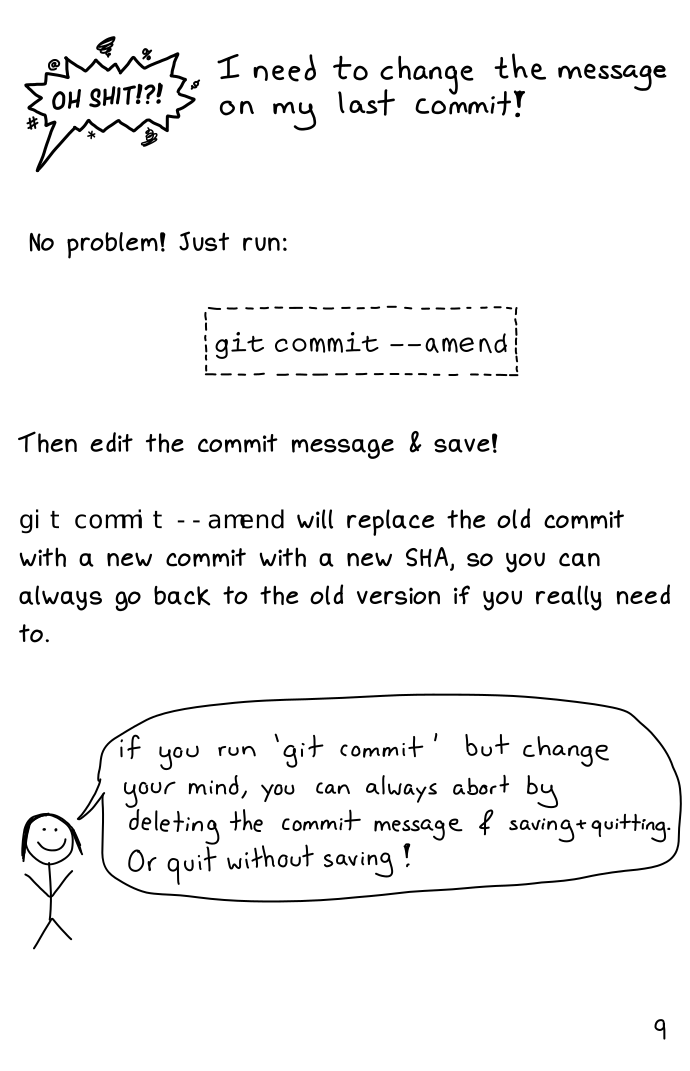 @ %
OH SHIT!?!
# *
I need to change the message
on my last commit!
No problem! Just run:
git commit --amend
Then edit the commit message & save!
git commit --amend will replace the old commit
with a new commit with a new SHA, so you can
always go back to the old version if you really need
to.
if you run 'git commit' but change
your mind, you can always abort by
deleting the commit message & saving+quitting.
Or quit without saving!
9